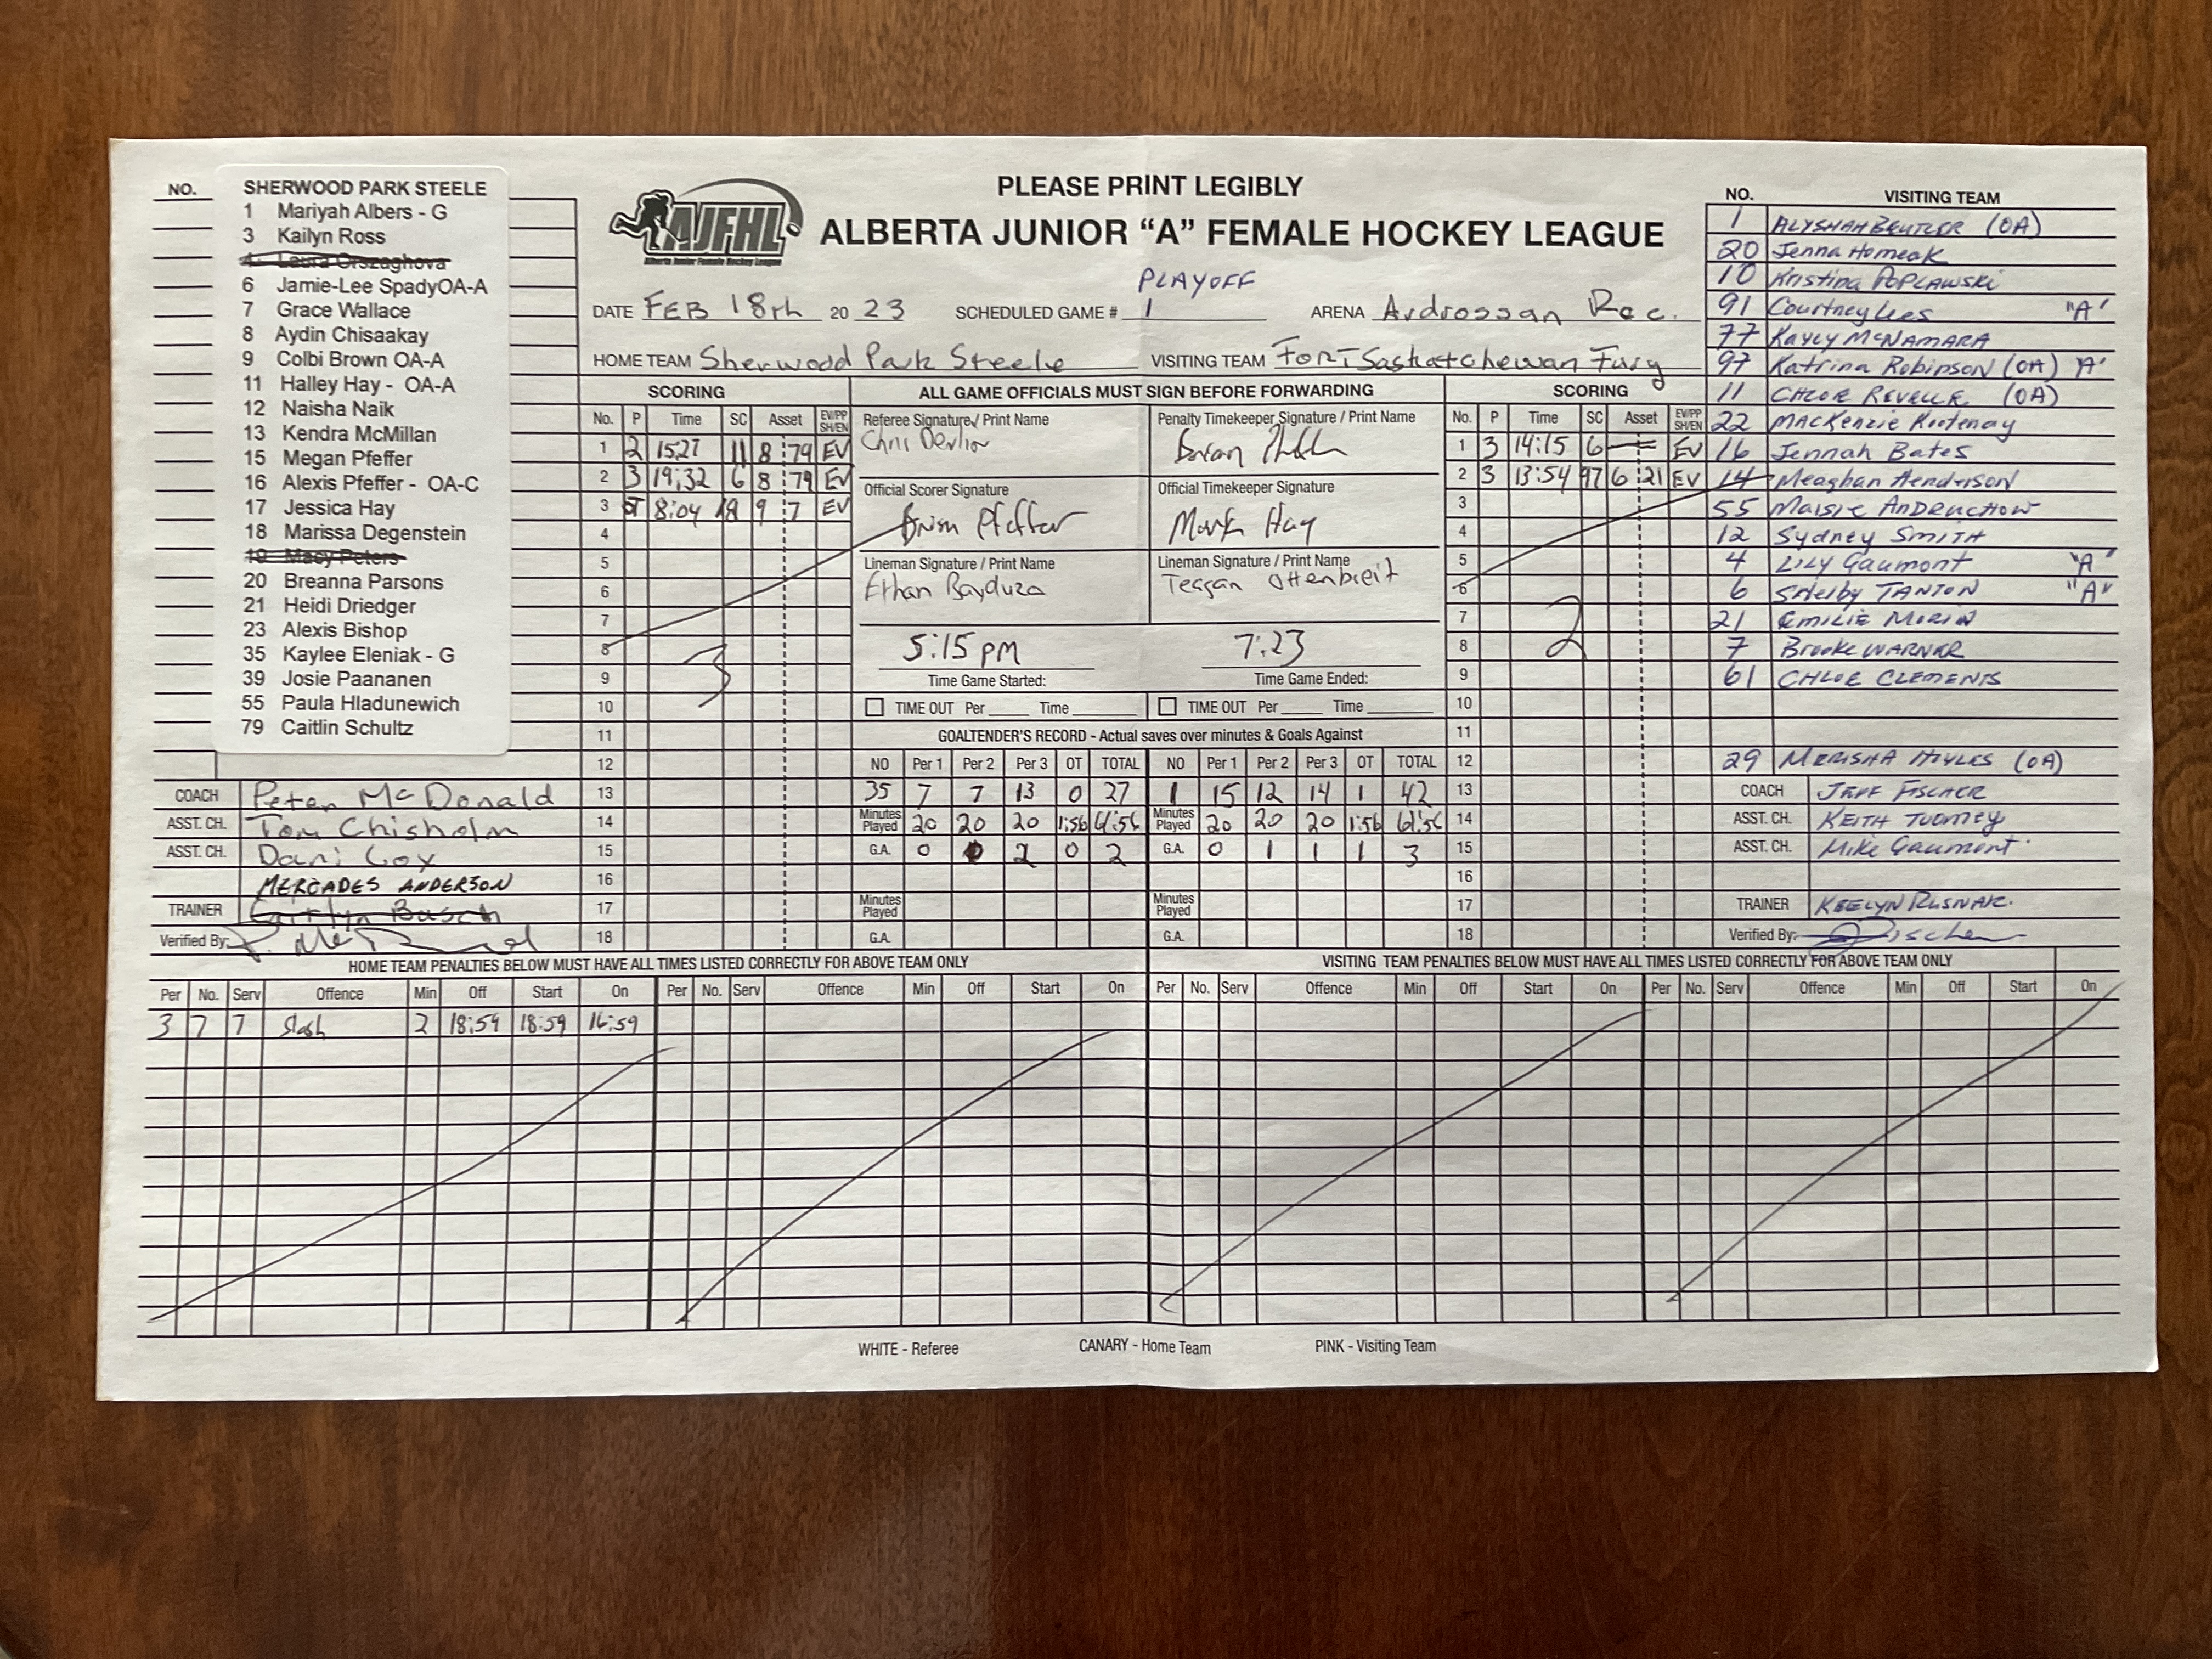 PLEASE PRINT LEGIBLY
AJFHL
Alberta Junior Female Hockey League
ALBERTA JUNIOR "A" FEMALE HOCKEY LEAGUE
DATE FEB 18th 20 23 SCHEDULED GAME # PLAYOFF 1 ARENA Ardrossan Rec.
HOME TEAM Sherwood Park Steele VISITING TEAM Fort Saskatchewan Fury
NO. SHERWOOD PARK STEELE
1 Mariyah Albers - G
3 Kailyn Ross
4 Laura Orszaghova
6 Jamie-Lee SpadyOA-A
7 Grace Wallace
8 Aydin Chisaakay
9 Colbi Brown OA-A
11 Halley Hay - OA-A
12 Naisha Naik
13 Kendra McMillan
15 Megan Pfeffer
16 Alexis Pfeffer - OA-C
17 Jessica Hay
18 Marissa Degenstein
19 Macy Peters
20 Breanna Parsons
21 Heidi Driedger
23 Alexis Bishop
35 Kaylee Eleniak - G
39 Josie Paananen
55 Paula Hladunewich
79 Caitlin Schultz
COACH Peter McDonald
ASST. CH. Tom Chisholm
ASST. CH. Dani Cox
MERCADES ANDERSON
TRAINER Caitlyn Busch
Verified By:
SCORING
No. P Time SC Asset EV/PP SH/EN
1 2 15:27 11 8 79 EV
2 3 19:32 6 8 79 EV
3 OT 8:04 18 9 7 EV
4
5
6
7
8
9
3
10
11
12
13
14
15
16
17
18
ALL GAME OFFICIALS MUST SIGN BEFORE FORWARDING
Referee Signature / Print Name
Penalty Timekeeper Signature / Print Name
Chris Devlin
Brian
Official Scorer Signature
Official Timekeeper Signature
Brian Pfeffer
Mark Hay
Lineman Signature / Print Name
Lineman Signature / Print Name
Ethan Bayduza
Teagan Ottenbreit
5:15 pm
7:23
Time Game Started:
Time Game Ended:
TIME OUT Per Time
TIME OUT Per Time
GOALTENDER'S RECORD - Actual saves over minutes & Goals Against
NO Per 1 Per 2 Per 3 OT TOTAL NO Per 1 Per 2 Per 3 OT TOTAL
35 7 7 13 0 27 1 15 12 14 1 42
Minutes Played 20 20 20 1:56 61:56 Minutes Played 20 20 20 1:56 61:56
G.A. 0 0 2 0 2 G.A. 0 1 1 1 3
Minutes Played Minutes Played
G.A. G.A.
SCORING
No. P Time SC Asset EV/PP SH/EN
1 3 14:15 6 EV
2 3 13:54 97 6 21 EV
3
4
5
6
7
8
2
9
10
11
12
13
14
15
16
17
18
NO. VISITING TEAM
1 ALYSHAH BEUTLER (OA)
20 Jenna Homeak
10 Kristina POPLAWSKI
91 Courtney Lees "A"
77 KAYLY McNAMARA
97 Katrina Robinson (OA) "A"
11 CHLOE REVELLE (OA)
22 MACKenzie Kootenay
16 Jennah Bates
14 Meaghan Henderson
55 Maisie ANDRUCHOW
12 Sydney SMITH
4 LILY Gaumont "A"
6 Shelby TANTON "A"
21 EMILIE MORIN
7 Brooke WARNER
61 CHLOE CLEMENTS
29 MERISHA HOYLES (OA)
COACH JEFF FISCHER
ASST. CH. KEITH TUOMEY
ASST. CH. Mike Gaumont
TRAINER KEELYN RUSNAK
Verified By:
HOME TEAM PENALTIES BELOW MUST HAVE ALL TIMES LISTED CORRECTLY FOR ABOVE TEAM ONLY
VISITING TEAM PENALTIES BELOW MUST HAVE ALL TIMES LISTED CORRECTLY FOR ABOVE TEAM ONLY
Per No. Serv Offence Min Off Start On Per No. Serv Offence Min Off Start On Per No. Serv Offence Min Off Start On Per No. Serv Offence Min Off Start On
3 7 7 Slash 2 18:59 18:59 16:59
WHITE - Referee CANARY - Home Team PINK - Visiting Team